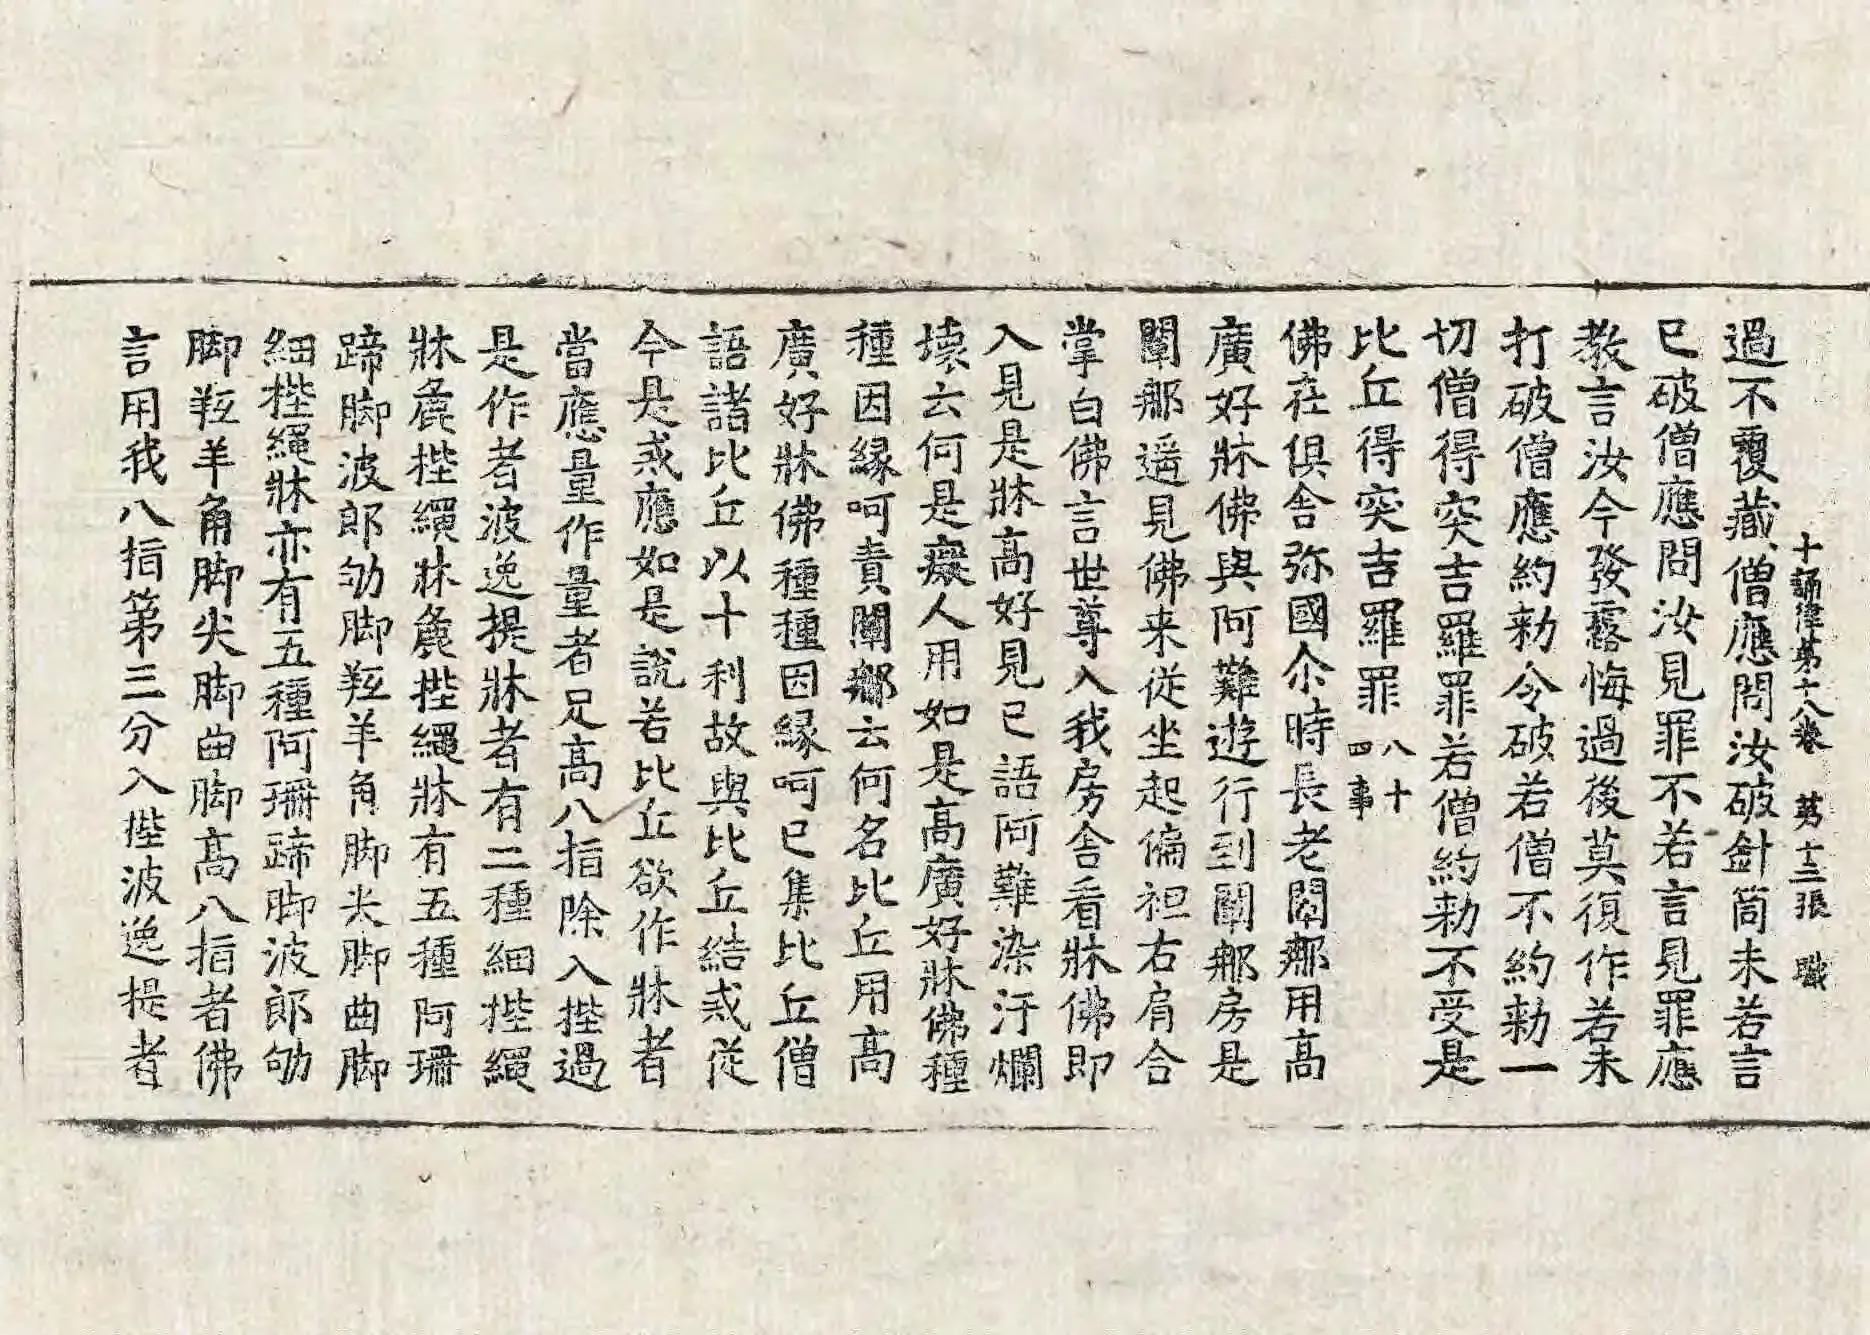 十誦律第十八卷　第十三張　職
過不覆藏僧應問汝破針筒未若言
已破僧應問汝見罪不若言見罪應
教言汝今發露悔過後莫復作若未
打破僧應約勑令破若僧不約勑一
切僧得突吉羅罪若僧約勑不受是
比丘得突吉羅罪八十四事
佛在俱舍弥國尒時長老闡那用高
廣好牀佛與阿難遊行到闡那房是
闡那遥見佛来從坐起偏袒右肩合
掌白佛言世尊入我房舍看牀佛即
入見是牀高好見已語阿難染汙爛
壊云何是癡人用如是高廣好牀佛種
種因縁呵責闡那云何名比丘用高
廣好牀佛種種因縁呵已集比丘僧
語諸比丘以十利故與比丘結戒従
今是戒應如是說若比丘欲作牀者
當應量作量者足高八指除入梐過
是作者波逸提牀者有二種細梐繩
牀麁梐繩牀麁梐繩牀有五種阿珊
蹄脚波郎劬脚羝羊角脚尖脚曲脚
細梐繩牀亦有五種阿珊蹄脚波郎劬
脚羝羊角脚尖脚曲脚高八指者佛
言用我八指第三分入梐波逸提者